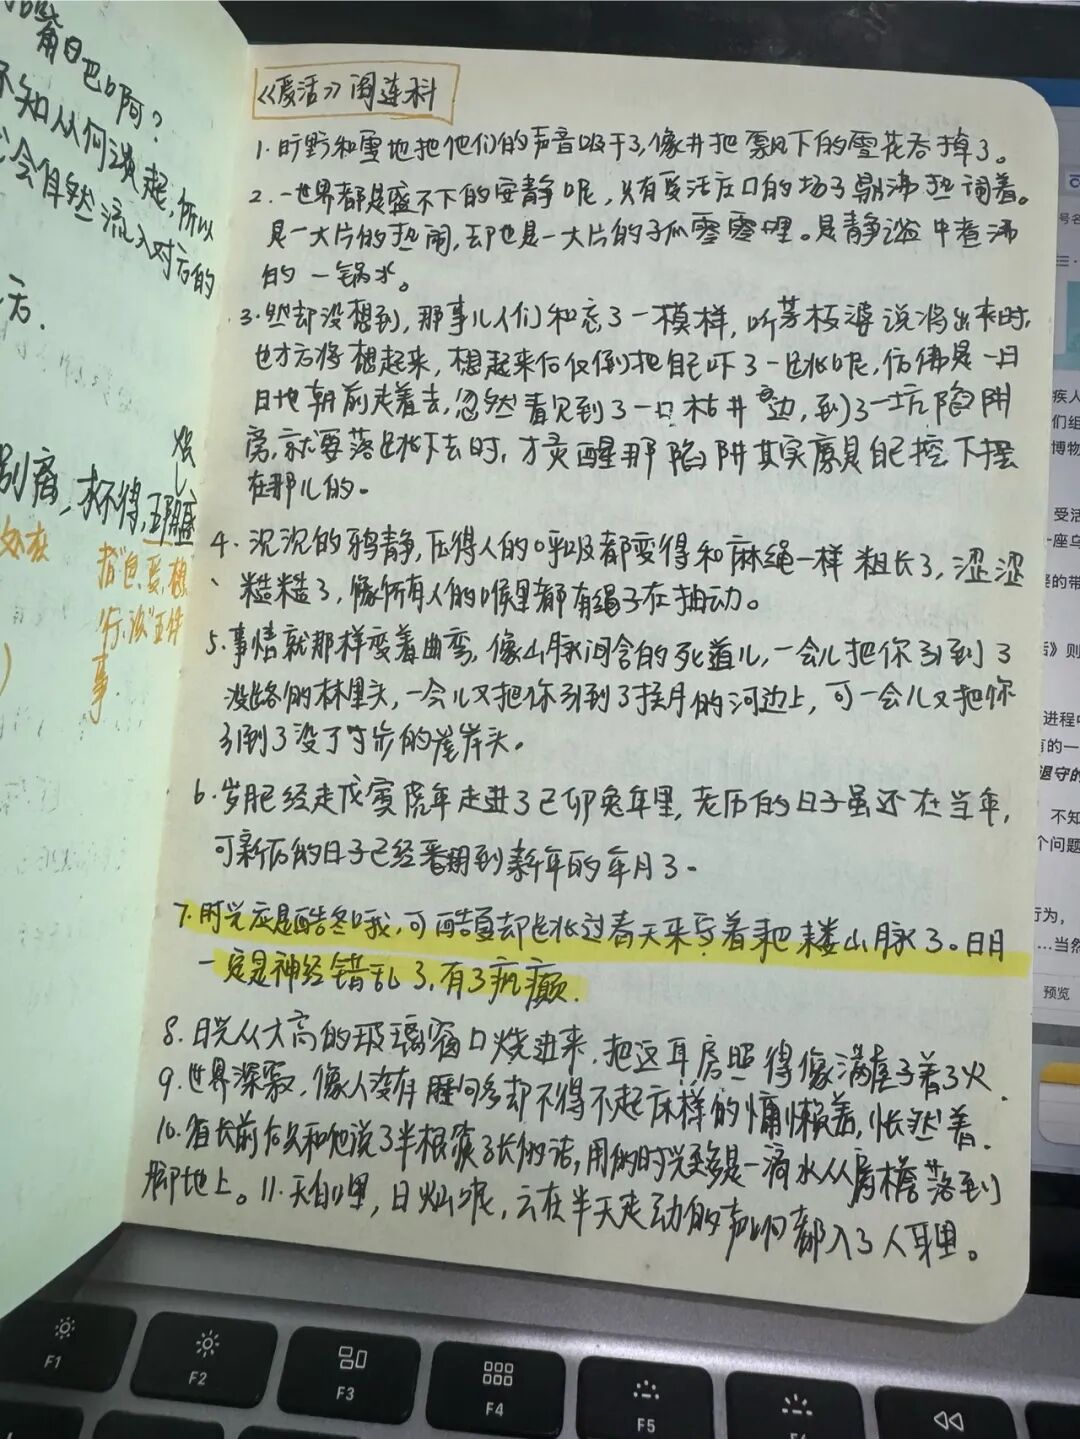 角日巴口阿？
不知从何谈起，所以
会自然流入对方的
方.
别离，求不得，五阴盛
炽
指"色、受、想、
行、识"五件
事.
《受活》阎连科
1. 旷野和雪地把他们的声音吸干了，像井把飘下的雪花吞掉了。
2. 一世界都是盛不下的安静呢，只有受活庄口的场子朝沸热闹着。
是一大片的热闹，却也是一大片的孤零零哩。是静谧中煮沸
的一锅水。
3. 然却没想到，那事儿人们和忘了一模样，听茅枝婆说将出来时，
也才方将想起来，想起来后仅倒把自己吓了一跳呢，仿佛是一日
日地朝前走着去，忽然看见到了一口枯井边，到了一坑陷阱
旁，就要落跳下去时，才灵醒那陷阱其实原是自己挖下摆
在那儿的。
4. 沉沉的鸦静，压得人的呼吸都变得和麻绳一样粗长了，涩涩
糙糙了，像所有人的喉里都有绳子在抽动。
5. 事情就那样变着曲弯，像山脉间含的死道儿，一会儿把你引到了
没路的林里头，一会儿又把你引到了挨月的河边上，可一会儿又把你
引到了没了寸步的崖岸头。
6. 岁月已经走戊寅虎年走进了己卯兔年里，老历的日子虽还在当年，
可新历的日子已经番翻到新年的年月了。
7. 时光应是酷冬哦，可酷夏却跳过春天来导着耙耧山脉了。日月
一定是神经错乱了，有了疯癫.
8. 日光从大高的玻璃窗口烧进来，把这耳房照得像满屋子着了火.
9. 世界深寂，像人没有睡何多却不得不起床样的慵懒着，怅然着.
10. 省长前后头和他说了半根筷子长的话，用的时光至多是一滴水从房檐落到
脚地上。11. 天白哩，日灿呢，云在半天走动的声响都入了人耳里。
F1
F2
F3
F4
F5
疾人
们组
博物
受活
一座乌
的带
》则
进程中
有的一
退守的
不知
个问题
行为，
…当然
预览